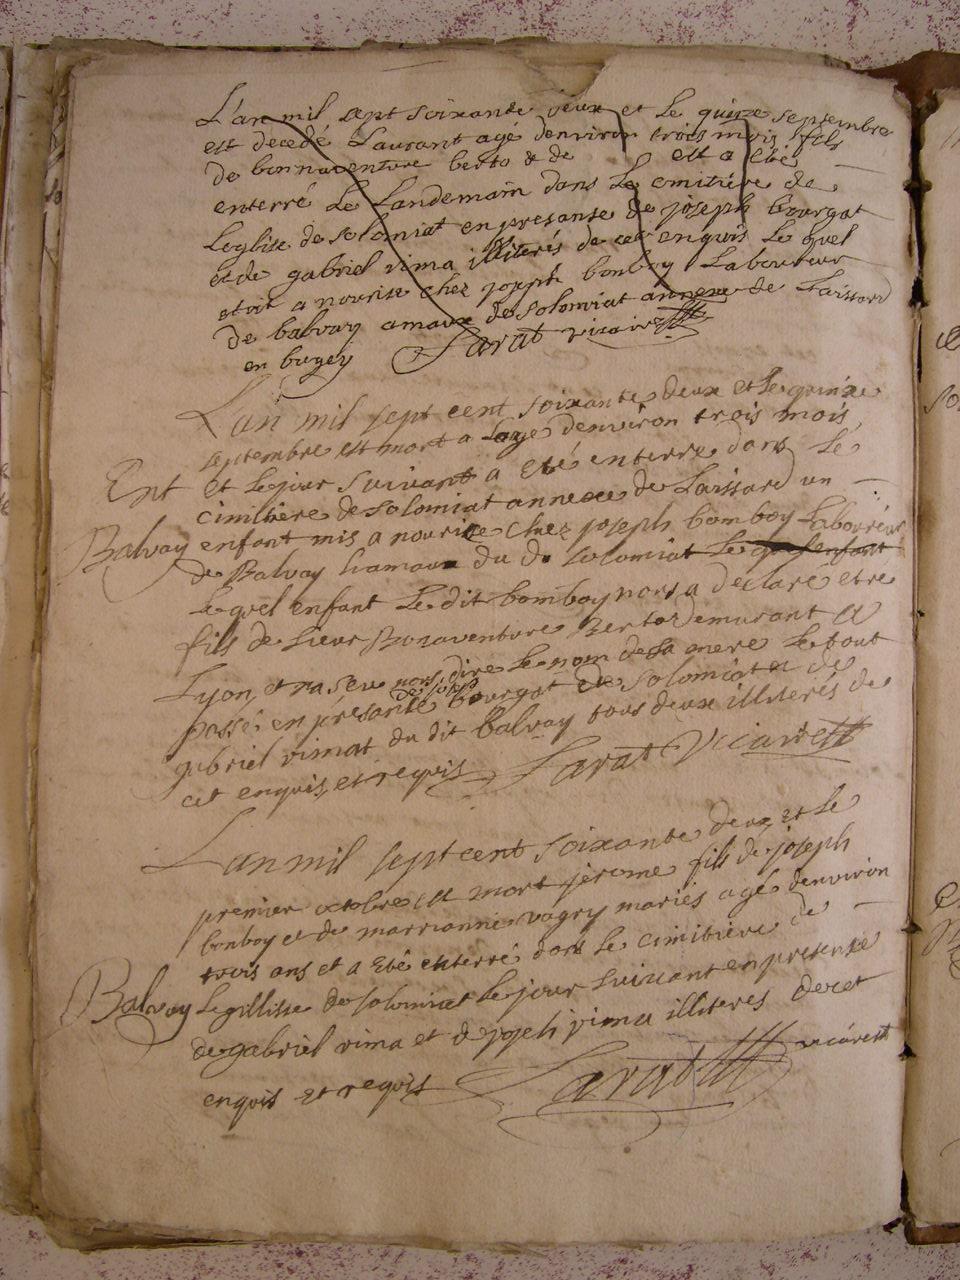 L'an mil sept soixante deux et le quinze septembre
est decedé Laurant agé denviron trois mois fils
de bonnaventure berto & de est a eté
enterré Le Landemain dans Le cmitiére de
Leglise de solomiat en presanse de joseph bourgat
et de gabriel vima illiterés de cet enquis Le quel
etoit a nourise chez joseph bonboy Laboureur
de balvay amaux de solomiat annexe de Laissard
en bugey Larat vicaire
L'an mil sept cent soixante deux et le quinze
septembre est mort a Lage denviron trois mois
Ent et Lejour suivant a eté enterre dans Le
cimitiére de solomiat annexe de Laissard un
Balvay enfant mis a nourice chez joseph bomboy Laboureur
de Balvay hamaux du d. solomiat Le quel enfant
Le quel enfant Le dit bomboy nous a declaré etre
fils de sieur Bonaventure Bertod demurant a
Lyon, et na seu nous dire Le nom de sa mere Le tout
passé en presante de joseph bourgat de solomiat et de
gabriel vimat du dit balvay tous deux illiterés de
cet enquis, et requis Larat Vicaire
L'an mil sept cent soixante deux et Le
premier octobre est mort jerome fils de joseph
bonboy et de marrianne vagry mariés agé denviron
trois ans et a eté enterré dans Le cimitiére de
Balvay Legillise de solomiat Le jour suivant en presense
de gabriel vima et de joseph vima illiteres de cet
enquis et requis Larat vicaire